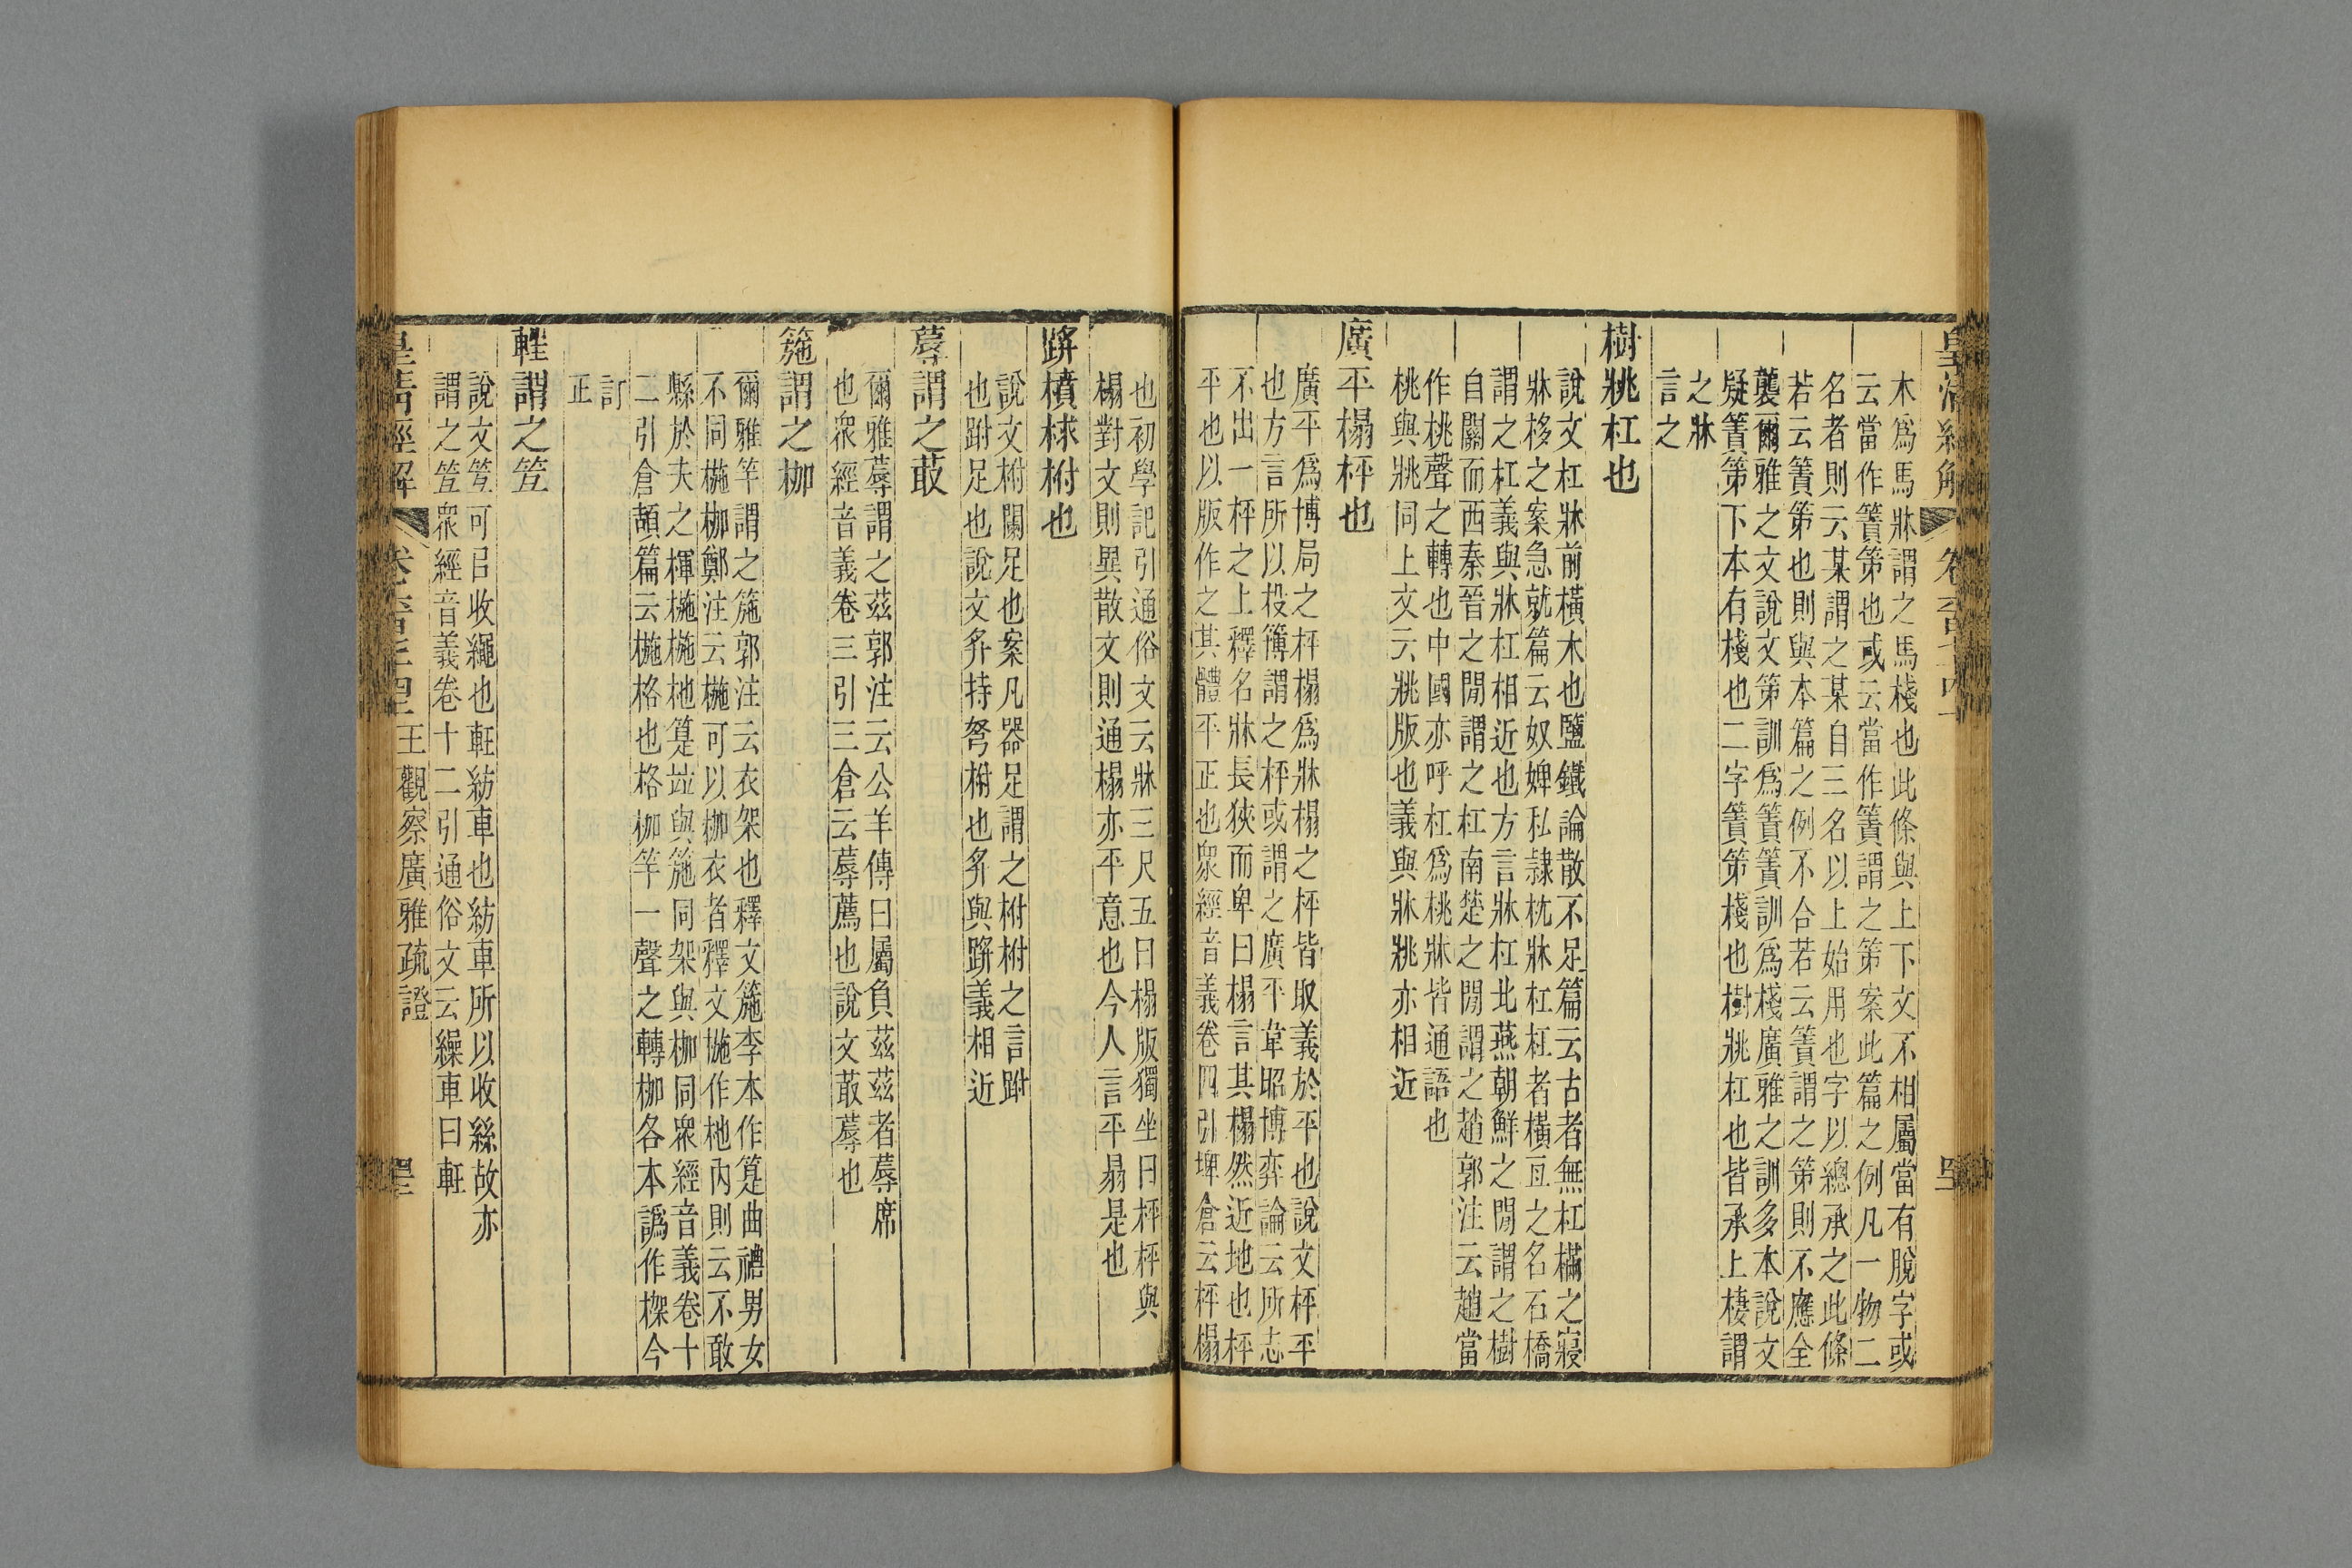 木爲馬牀謂之馬棧也此條與上下文不相屬當有脫字或
云當作簀第也或云當作簀謂之第案此篇之例凡一物二
名者則云某謂之某自三名以上始用也字以總承之此條
若云簀第也則與本篇之例不合若云簀謂之第則不應全
襲爾雅之文說文第訓爲簀簀訓爲棧廣雅之訓多本說文
疑簀第下本有棧也二字簀第棧也樹㸠杠也皆承上棲謂
之牀
言之
樹㸠杠也
說文杠牀前橫木也鹽鐵論散不足篇云古者無杠樠之寢
牀栘之案急就篇云奴婢私隷枕牀杠杠者橫亙之名石橋
謂之杠義與牀杠相近也方言牀杠北燕朝鮮之閒謂之樹
自關而西秦晉之閒謂之杠南楚之閒謂之趙郭注云趙當
作桃聲之轉也中國亦呼杠爲桃牀皆通語也
桃與㸠同上文云㸠版也義與牀㸠亦相近
廣平榻枰也
廣平爲博局之枰榻爲牀榻之枰皆取義於平也說文枰平
也方言所以投簙謂之枰或謂之廣平韋昭博弈論云所志
不出一枰之上釋名牀長狹而卑曰榻言其榻然近地也枰
平也以版作之其體平正也衆經音義卷四引埤倉云枰榻
也初學記引通俗文云牀三尺五曰榻版獨坐曰枰枰與
榻對文則異散文則通榻亦平意也今人言平易是也
跰橨梂柎也
說文柎闌足也案凡器足謂之柎柎之言跗
也跗足也說文弅持弩柎也弅與跰義相近
蓐謂之菆
爾雅蓐謂之茲郭注云公羊傳曰屬負茲茲者蓐席
也衆經音義卷三引三倉云蓐薦也說文菆蓐也
箷謂之枷
爾雅竿謂之箷郭注云衣架也釋文箷李本作篗曲禮男女
不同椸枷鄭注云椸可以枷衣者釋文椸作杝內則云不敢
縣於夫之楎椸椸杝篗竝與箷同架與枷同衆經音義卷十
二引倉頡篇云椸格也格枷竿一聲之轉枷各本譌作榤今
訂
正
軠謂之笪
說文笪可㠯收繩也軠紡車也紡車所以收絲故亦
謂之笪衆經音義卷十二引通俗文云繰車曰軠
王觀察廣雅疏證